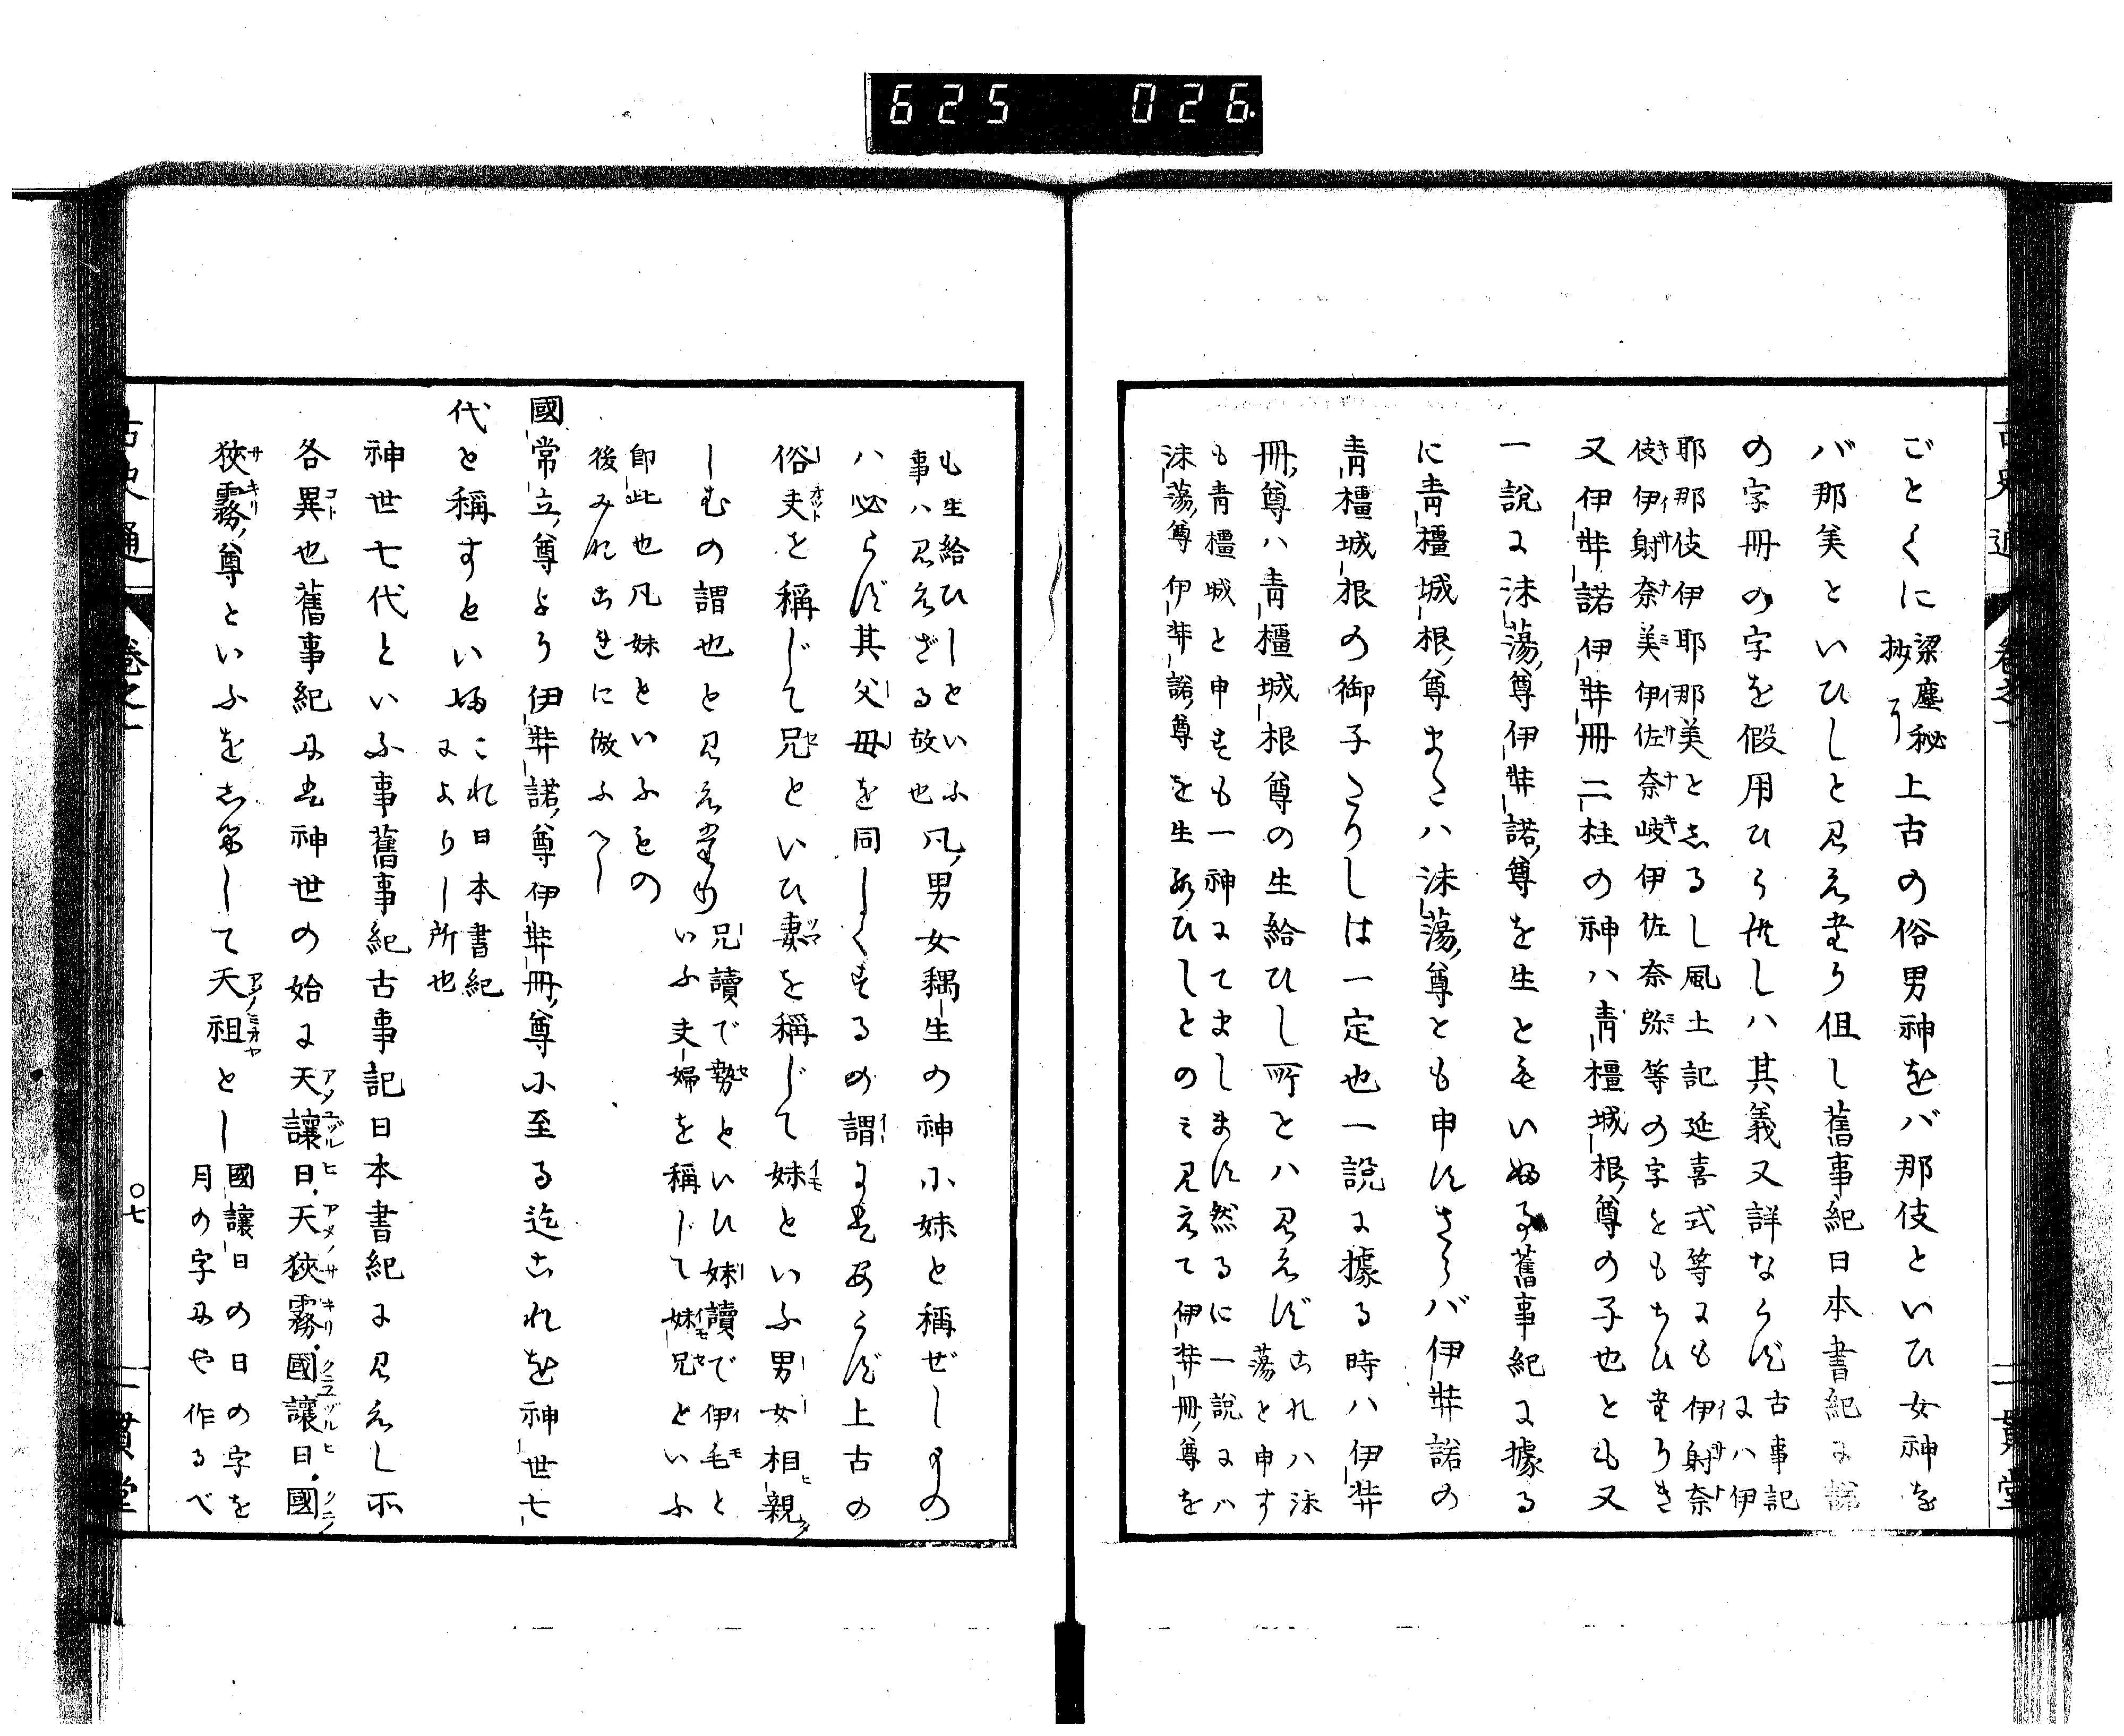 625 026.
古史通 卷之一 一貫堂
ごとくに梁塵秘抄引上古の俗男神をバ那伎といひ女神を
バ那美といひしと見え𛁠り但し舊事紀日本書紀に諾
の字冊の字を假用ひられしハ其義又詳ならず古事記にハ伊
耶那伎伊耶那美としるし風土記延喜式等にも伊射奈
伎伊射奈美伊佐奈岐伊佐奈弥等の字をもちひ𛁠りき
又伊弉諾伊弉冊二柱の神ハ青橿城根尊の子也とも又
一説に沫蕩尊伊弉諾尊を生ともいふ事舊事紀に據る
に青橿城根尊または沫蕩尊とも申すさらバ伊弉諾の
青橿城根の御子たりしは一定也一説に據る時ハ伊弉
冊尊ハ青橿城根尊の生給ひし所とハ見えずこれハ沫蕩と申す
も青橿城と申すも一神にてまします然るに一説にハ
沫蕩尊伊弉諾尊を生給ひしとのミ見えて伊弉冊尊を
も生給ひしといふ
事ハ見えざる故也凡男女耦生の神に妹と稱ぜしもの
ハ必らず其父母を同しくするの謂にはあらず上古の
俗夫を稱じて兄といひ妻を稱じて妹といふ男女相親
しむの謂也と見え𛁠り兄讀で勢といひ妹讀で伊毛と
いふ夫婦を稱じて妹兄といふ
即此也凡妹といふもの
後みなこれに倣ふへし
國常立尊より伊弉諾尊伊弉冊尊に至る迄これを神世七
代と稱すといふこれ日本書紀
によりし所也
神世七代といふ事舊事紀古事記日本書紀に見えし所
各異也舊事紀には神世の始に天讓日天狹霧國讓日國
狹霧尊といふをしるして天祖とし國讓日の日の字を
月の字にや作るべ
古史通 卷之一 〇七 一貫堂